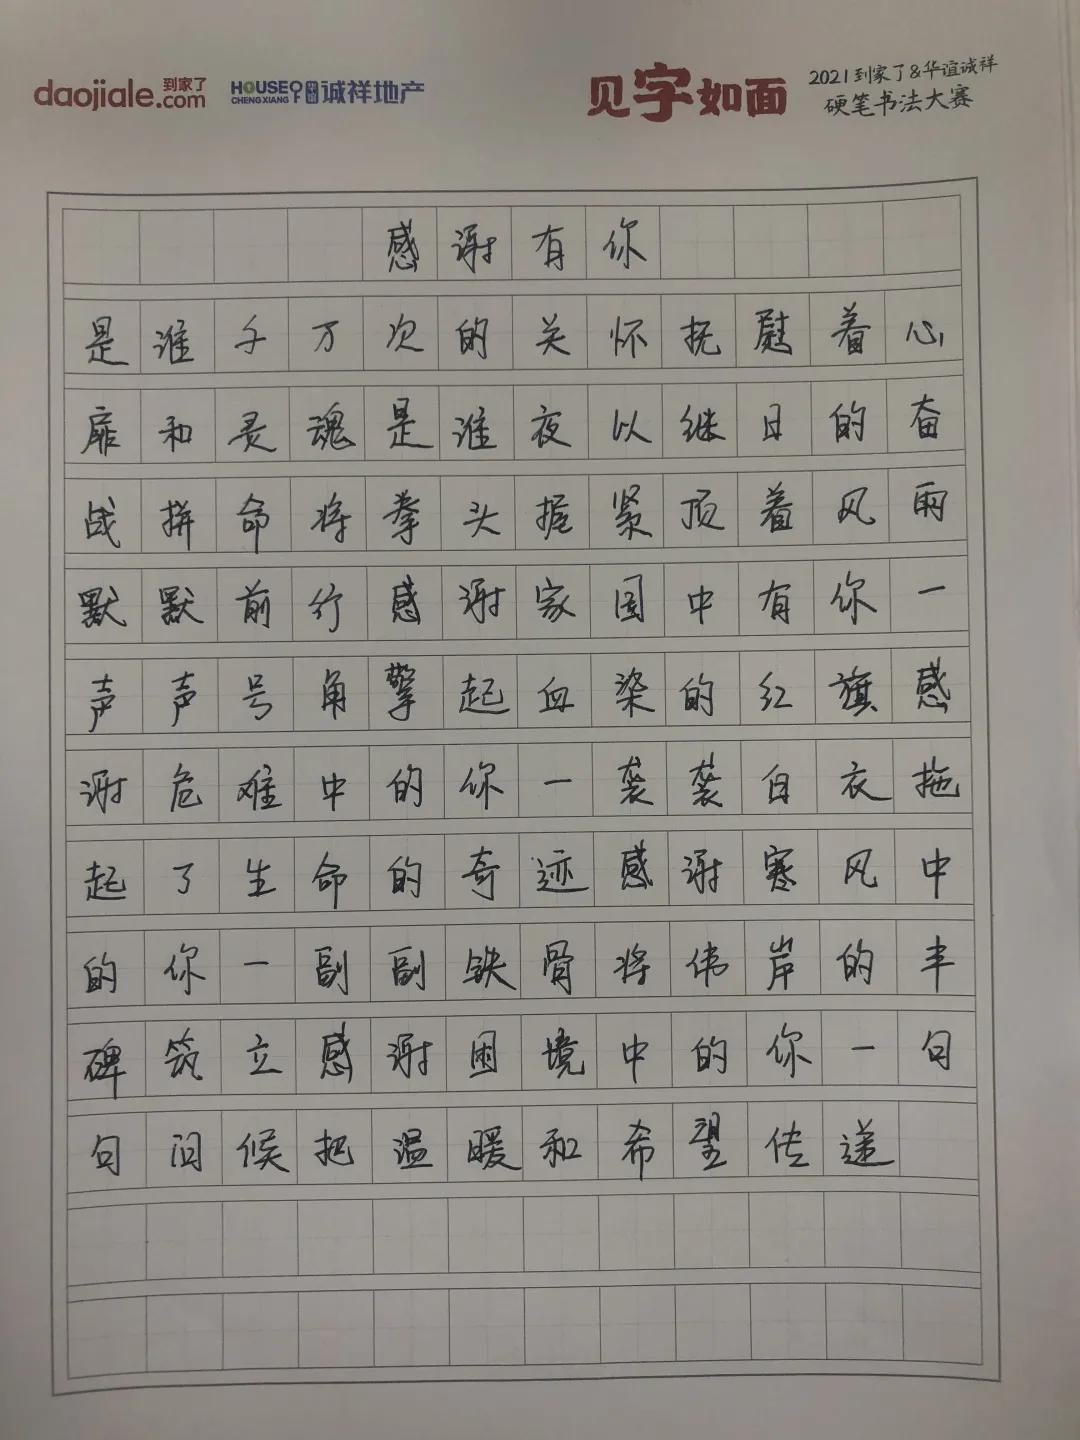 到家了
daojiale.com
HOUSE
CHENGXIANG
诚祥地产
见字如面
2021到家了&华谊诚祥
硬笔书法大赛
感谢有你
是谁千万次的关怀抚慰着心
扉和灵魂是谁夜以继日的奋
战拼命将拳头握紧顶着风雨
默默前行感谢家园中有你一
声声号角擎起血染的红旗感
谢危难中的你一袭袭白衣拖
起了生命的奇迹感谢寒风中
的你一副副铁骨将伟岸的丰
碑筑立感谢困境中的你一句
句问候把温暖和希望传递